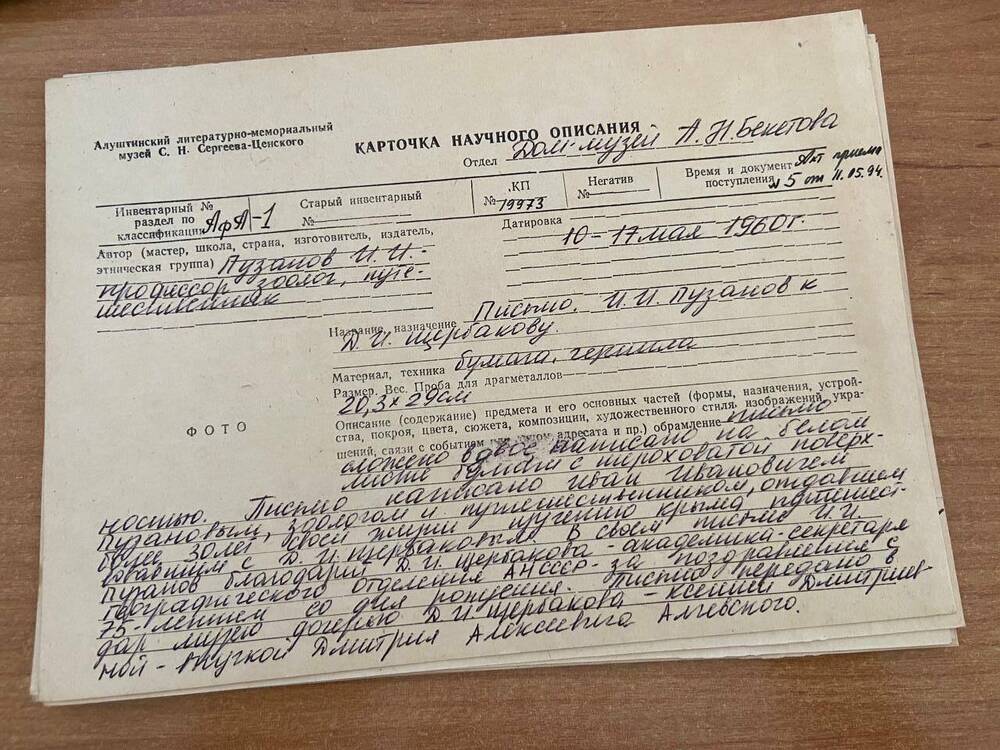 Алуштинский литературно-мемориальный
музей С. Н. Сергеева-Ценского
КАРТОЧКА НАУЧНОГО ОПИСАНИЯ
Отдел Дом-музей А.Н.Бекетова
Инвентарный №
раздел по
классификации АфА-1
Старый инвентарный
№
КП
№ 19973
Негатив
№
Время и документ Акт приема
поступления №5 от 11.05.94.
Автор (мастер, школа, страна, изготовитель, издатель,
этническая группа) Пузанов И.И.-
профессор зоолог, путе-
шественник
Датировка
10-17 мая 1960г.
Название, назначение Письмо. И.И. Пузанов к
Д.И. Щербакову.
Материал, техника бумага, чернила
Размер. Вес. Проба для драгметаллов
20,3 х 29см
ФОТО
Описание (содержание) предмета и его основных частей (формы, назначения, устрой-
ства, покроя, цвета, сюжета, композиции, художественного стиля, изображений, укра-
шений, связи с событием или лицом, адресата и пр.) обрамление письмо
сложено вдвое написано на белом
листе бумаги с шероховатой поверх-
ностью. Письмо написано Иван Ивановичем
Пузановым, зоологом и путешественником, отдавшем
более 30лет своей жизни изучению Крыма путешес-
твовавшим с Д.И.Щербаковым. В своем письме И.И.
Пузанов благодарит Д.И.Щербакова - академика-секретаря
географического отделения АНСССР - за поздравления с
75-летием со дня рождения. Письмо передано в
дар музею дочерью Д.И.Щербакова - Ксенией Дмитриев-
ной - внучкой Дмитрия Алексеевича Алчевского.